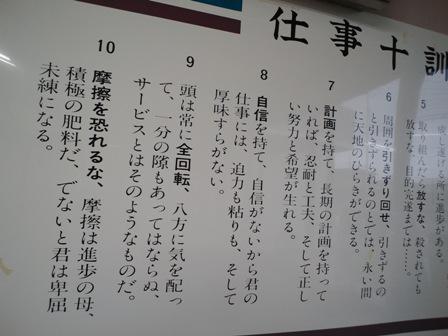 仕事十訓
進歩がある。
5 取り組んだら放すな、殺されても
放すな、目的完遂までは……。
6 周囲を引きずり回せ、引きずるの
と引きずられるのとでは、永い間
に天地のひらきができる。
7 計画を持て、長期の計画を持って
いれば、忍耐と工夫、そして正し
い努力と希望が生れる。
8 自信を持て、自信がないから君の
仕事には、迫力も粘りも、そして
厚味すらがない。
9 頭は常に全回転、八方に気を配っ
て、一分の隙もあってはならぬ、
サービスとはそのようなものだ。
10 摩擦を恐れるな、摩擦は進歩の母、
積極の肥料だ、でないと君は卑屈
未練になる。